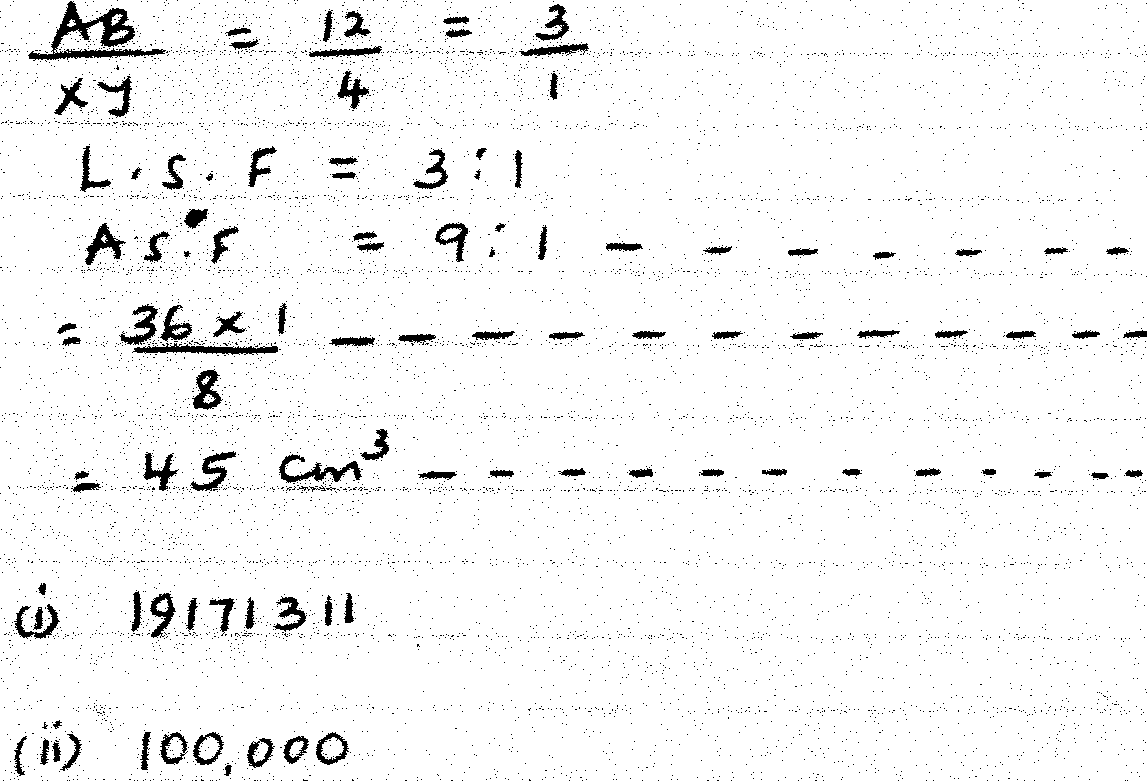 AB/xy = 12/4 = 3/1
L.S.F = 3:1
A.S.F = 9:1 - - - - - - -
= 36 x 1/8 - - - - - - - - - - -
= 45 cm³ - - - - - - - - - - -
(i) 19171311
(ii) 100,000